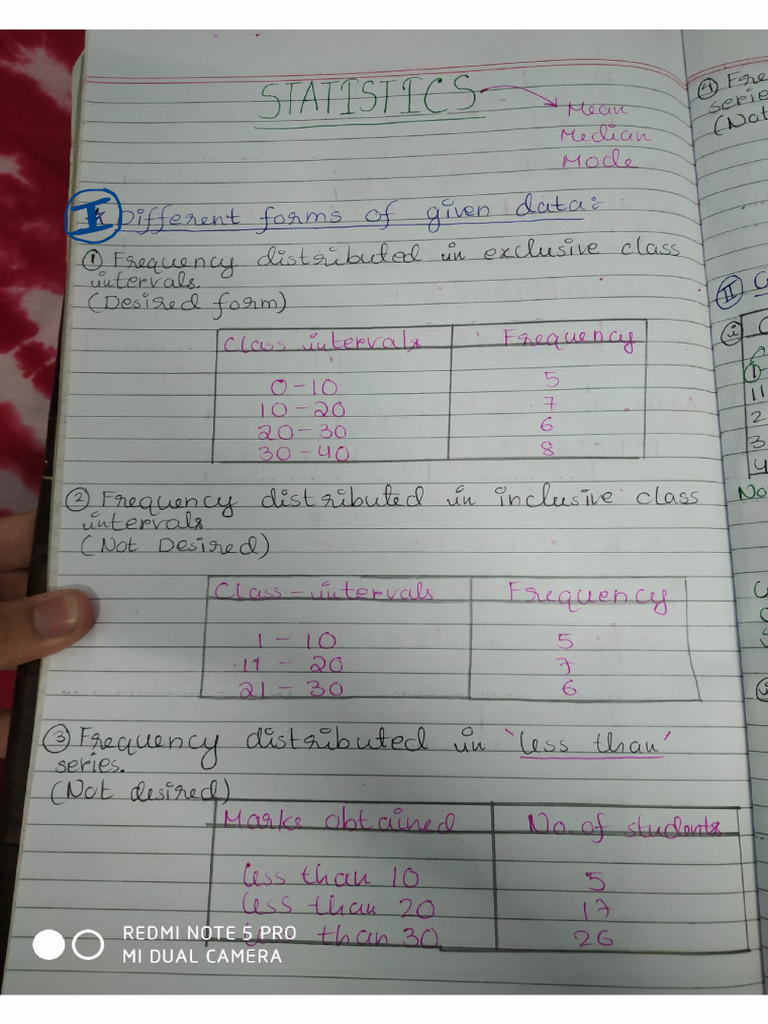 STATISTICS
Mean
Median
Mode
I Different forms of given data:
① Frequency distributed in exclusive class
intervals.
(Desired form)
Class intervals Frequency
0-10 5
10-20 7
20-30 6
30-40 8
② Frequency distributed in inclusive class
intervals
(Not Desired)
Class-intervals Frequency
1-10 5
11-20 7
21-30 6
③ Frequency distributed in 'less than'
series.
(Not desired)
Marks obtained No. of students
less than 10 5
less than 20 17
than 30 26
REDMI NOTE 5 PRO
MI DUAL CAMERA
④ Fre
serie
(Not
II
①
11
2
3
4
No